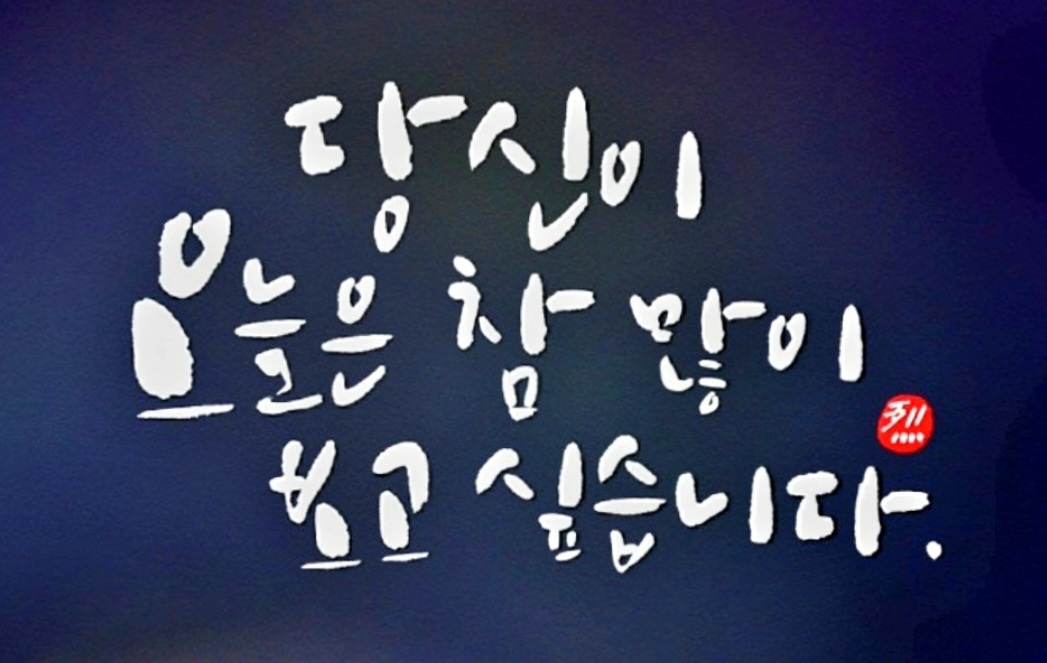 당신이
오늘은 참 많이
보고 싶습니다.